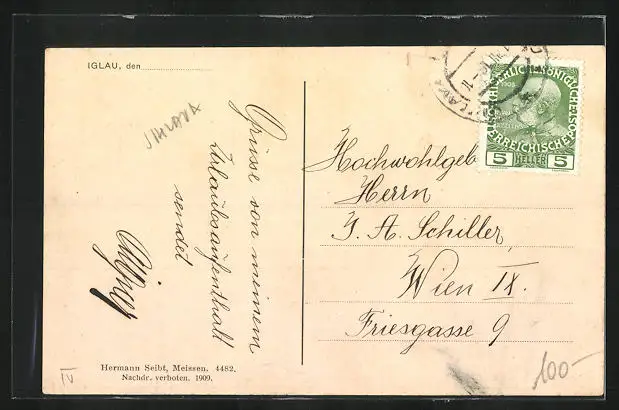 IGLAU, den
JIHLAVA
Grüsse von meinem
Urlaubsaufenthalt
sendet
Hochwohlgeb
Herrn
J. A. Schiller
Wien IX.
Friesgasse 9
KAISERLICHE KÖNIGLICHE
1908
ÖSTERREICHISCHE POST
5 HELLER 5
Hermann Seibt, Meissen. 4482.
Nachdr. verboten. 1909.
IV
100-